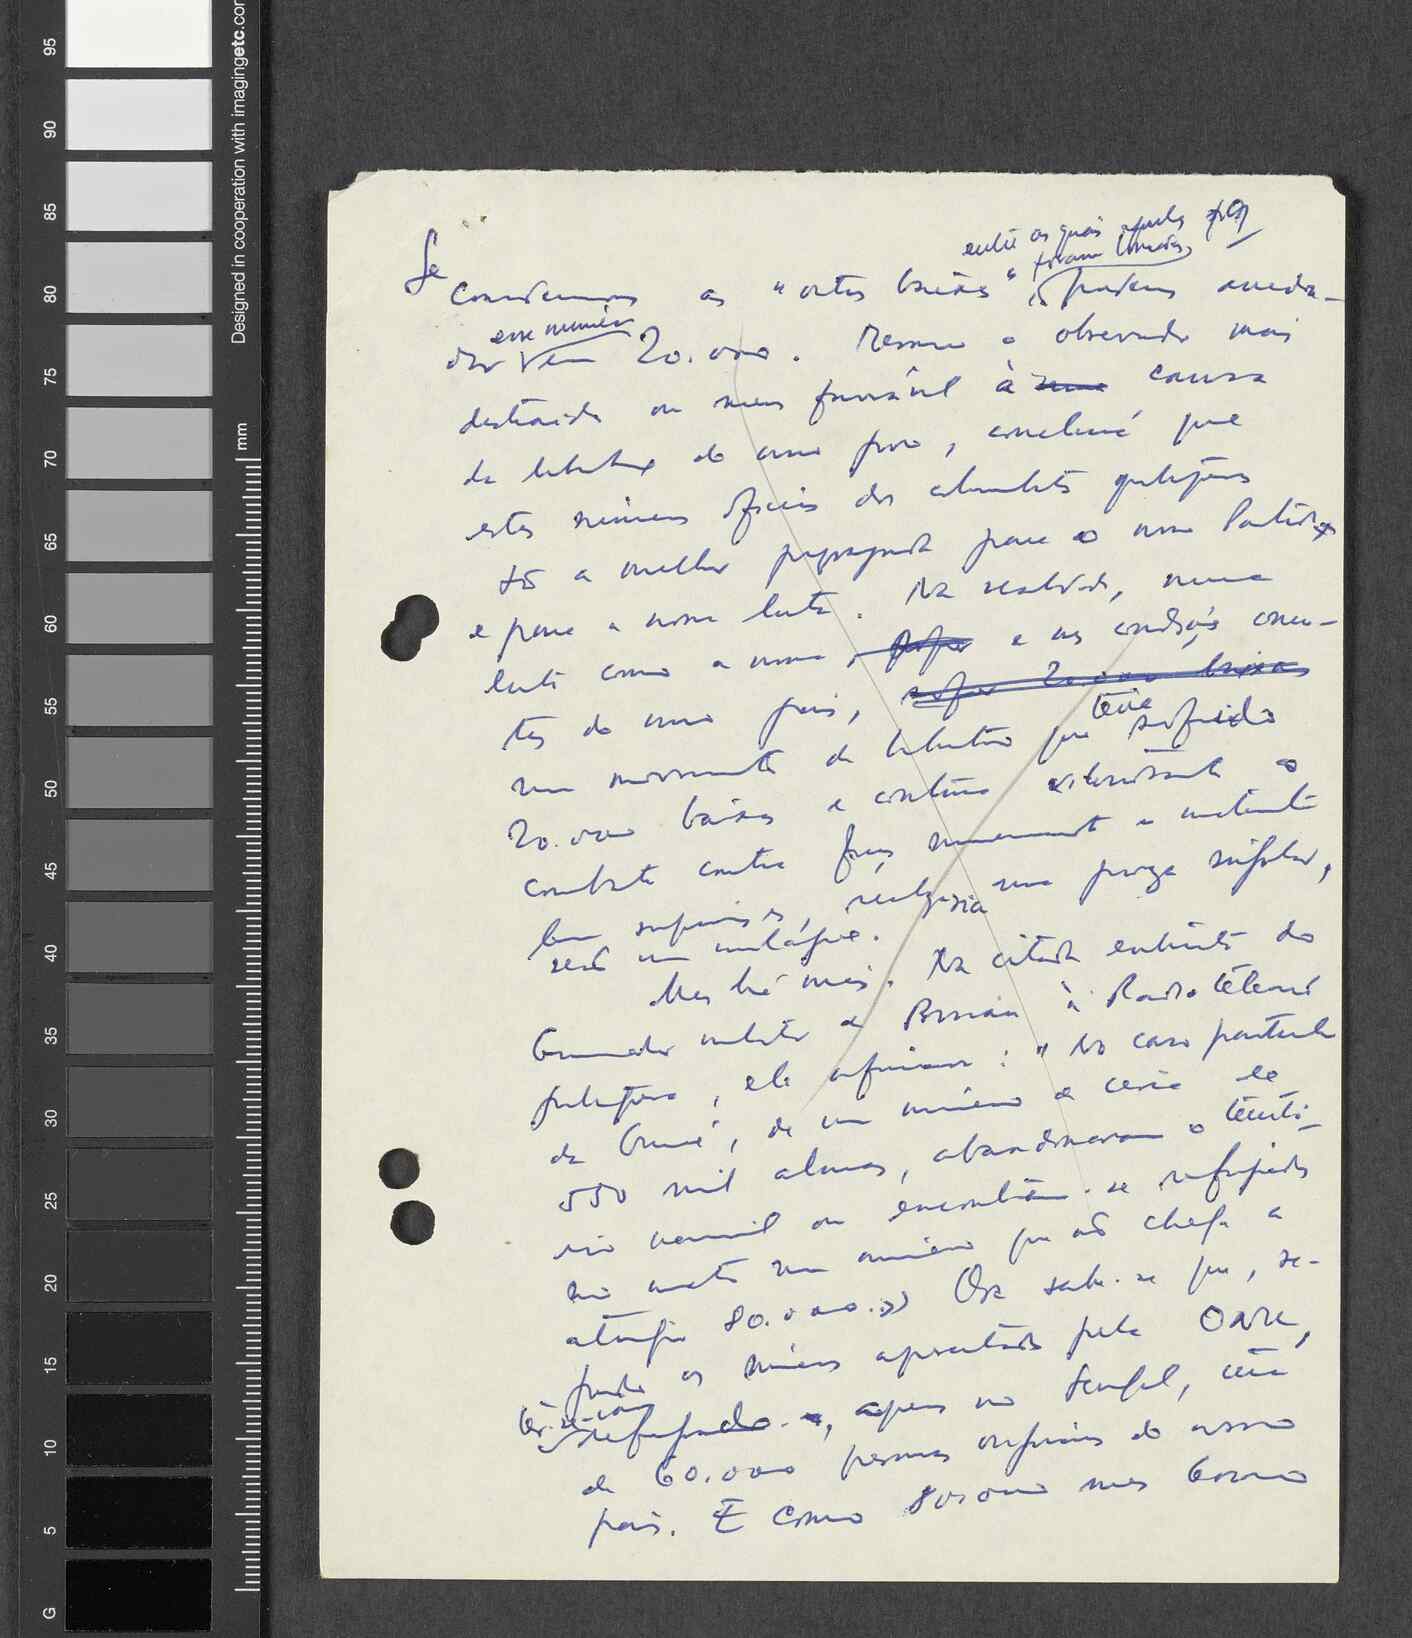 95
90
85
80
75
70
65
60
55
50
45
40
35
30
25
20
15
10
5
G
Designed in cooperation with imagingetc.com
mm
entre os quais
foram
Se
consideramos as "outras baixas" podem arredon-
esse número
dar em 20.000. Mesmo o observador mais
destraído ou menos favorável à causa
da libertação do nosso povo, concluirá que
estes números oficiais dos colonialistas portugueses
são a melhor propaganda para o nosso Partido
e para a nossa luta. Na realidade, numa
luta como a nossa, e nas condições concre-
tas do nosso país,
um movimento de libertação que teria sofrido
20.000 baixas e continua vitoriosamente o
combate contra forças numericamente e materialmente
bem superiores, realizaria uma proeza singular,
seria um milagre.
Mas há mais. Na citada entrevista do
Governador militar de Bissau à Radiotelevisão
portuguesa, ele afirmava: "No caso particular
da Guiné, de um número de cerca de
550 mil almas, abandonaram o territó-
rio nacional ou encontram-se refugiados
no mato um número que não chega a
atingir 80.000.» Ora sabe-se que, se-
gundo os números apresentados pela ONU,
refugiado, apenas no Senegal, cerca
de 60.000 pessoas originárias do nosso
país. E como 80.000 mas